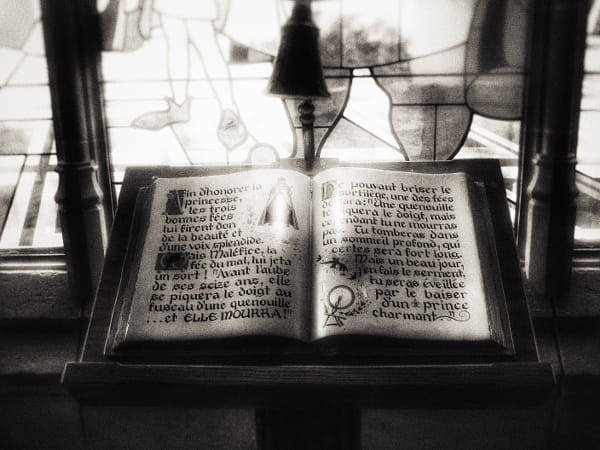 Afin d'honorer la
princesse,
les trois
bonnes fées
lui firent don
de la beauté et
d'une voix splendide.
Mais Maléfice, la
fée du mal, lui jeta
un sort! "Avant l'aube
de ses seize ans, elle
se piquera le doigt au
fuseau d'une quenouille
...et ELLE MOURRA!"
Ne pouvant briser le
sortilège, une des fées
déclara: "Une quenouille
te piquera le doigt, mais
cependant tu ne mourras
pas. Tu tomberas dans
un sommeil profond, qui
certes sera fort long.
Mais un beau jour,
j'en fais le serment,
tu seras éveillée
par le baiser
d'un prince
charmant"